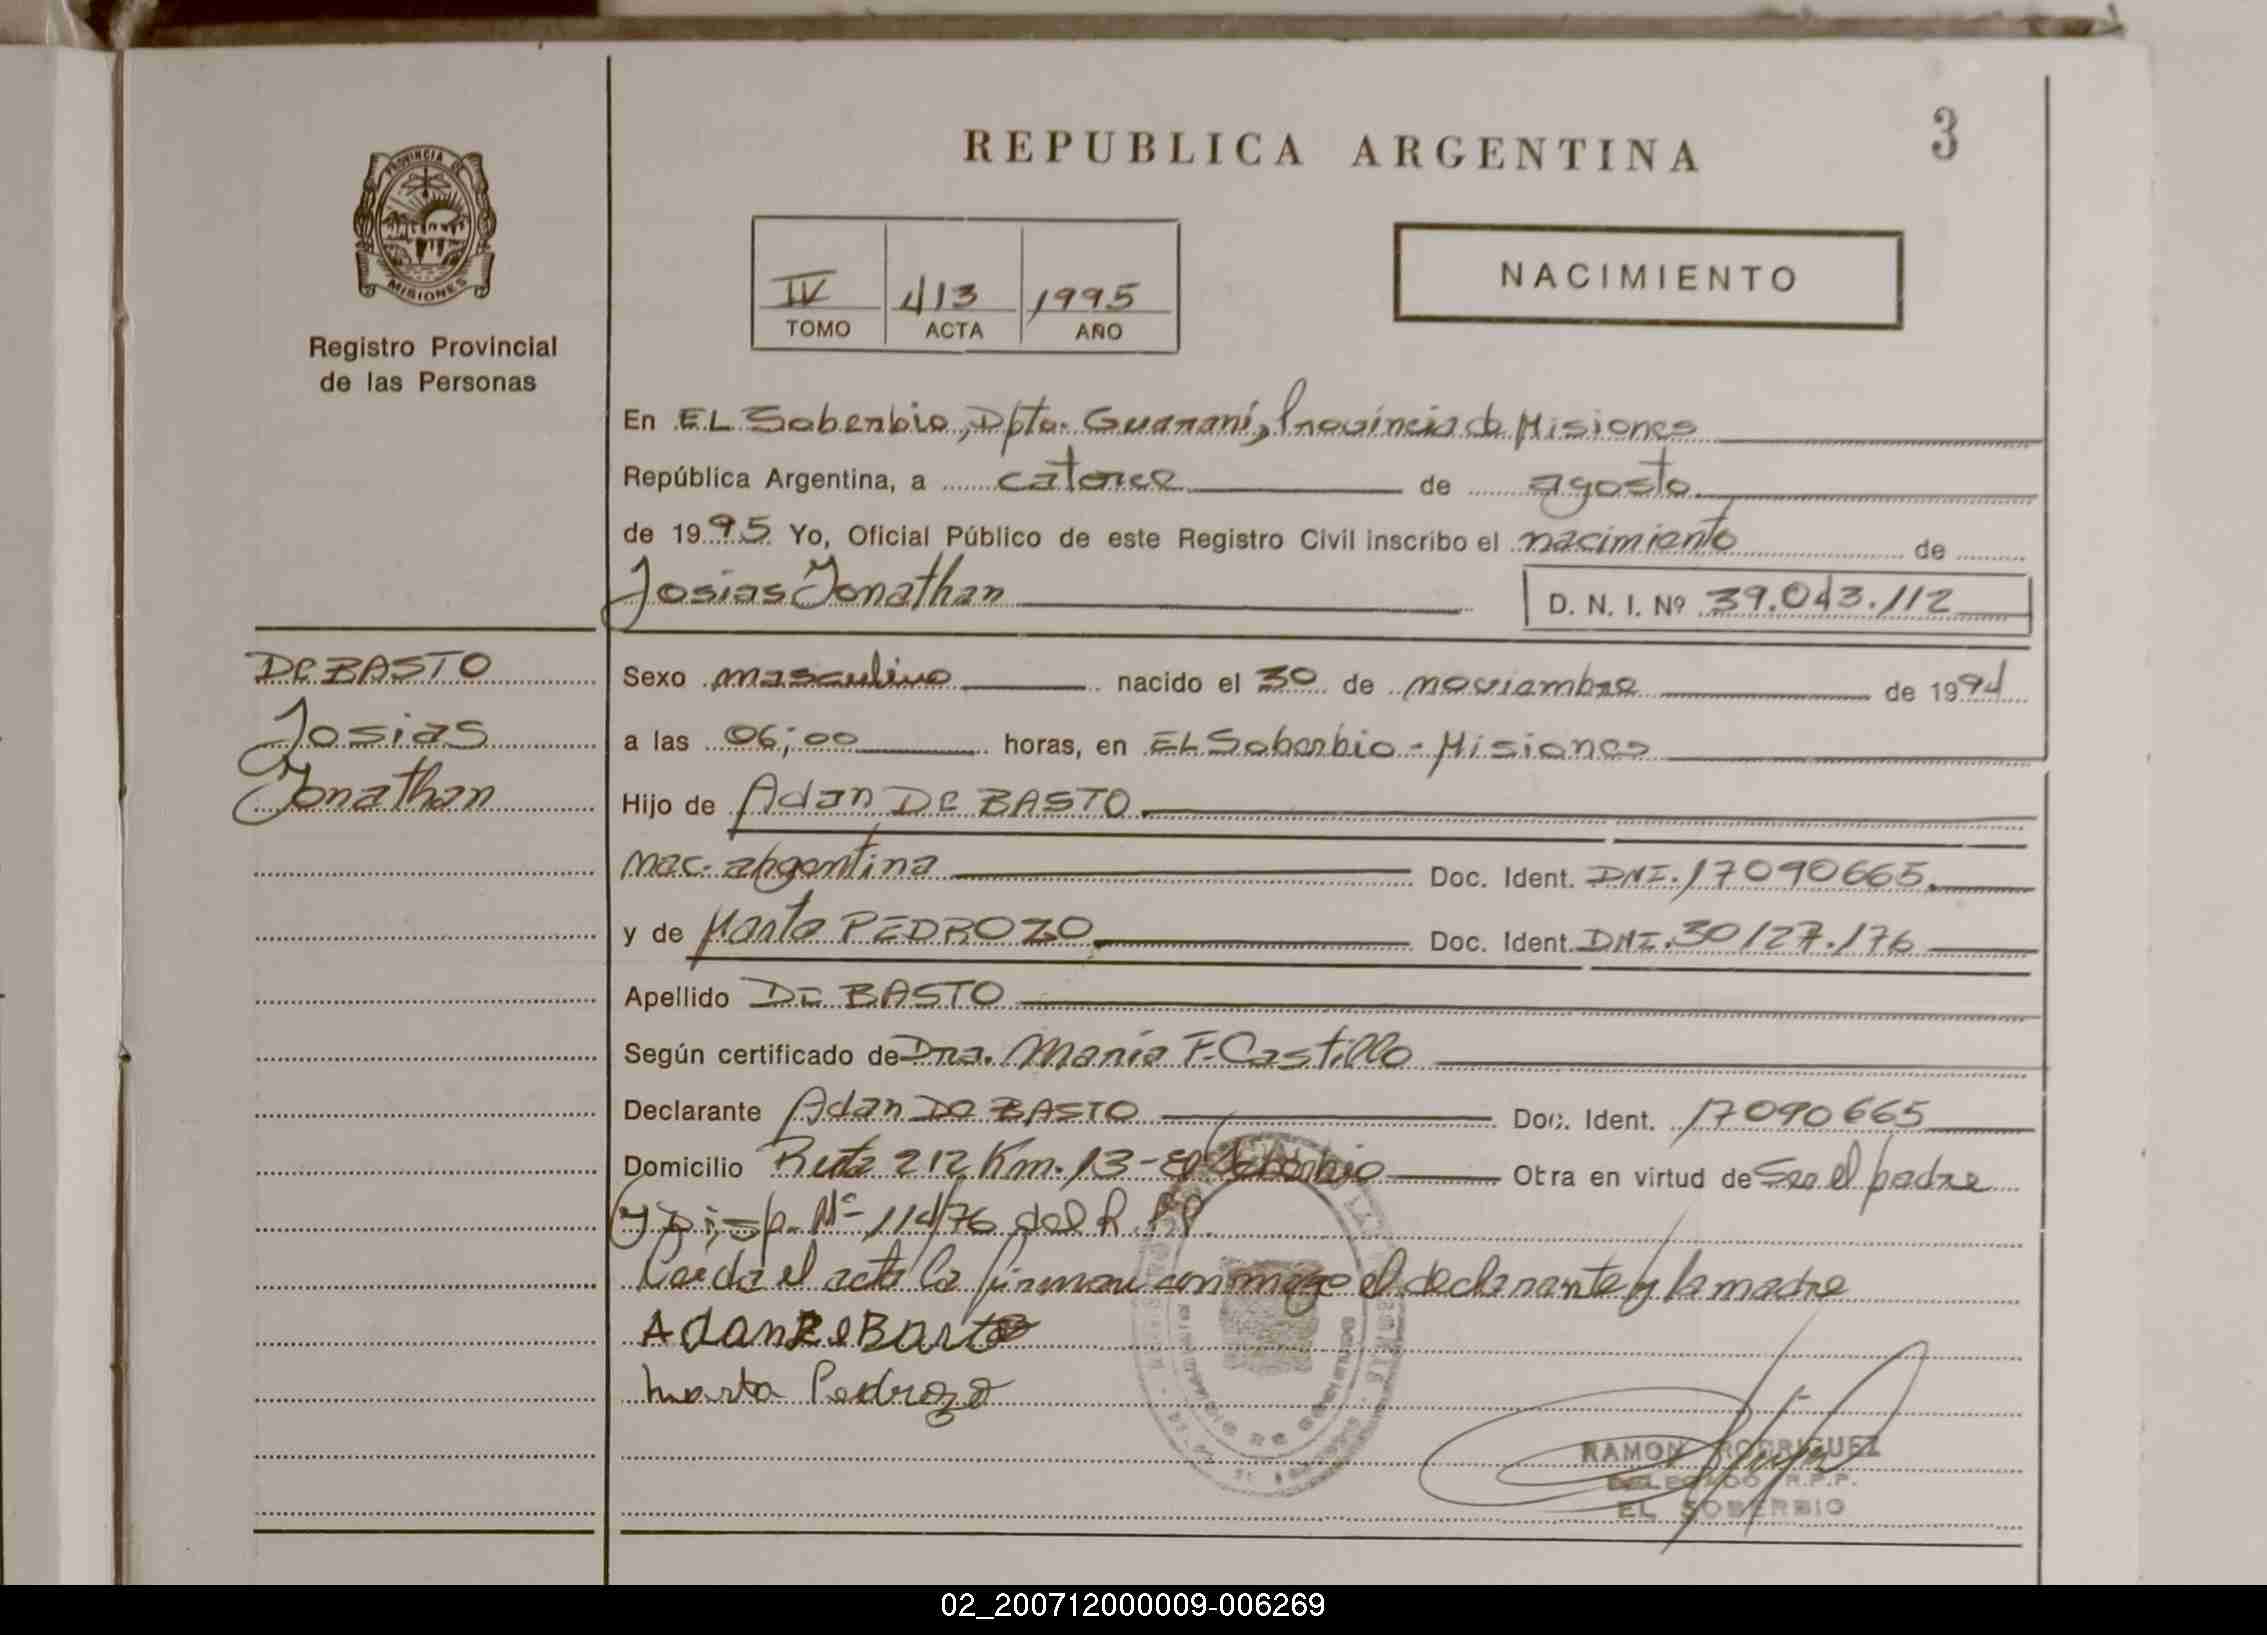 REPUBLICA ARGENTINA
3
PROVINCIA DE
MISIONES
Registro Provincial
de las Personas
IV 413 1995
TOMO ACTA AÑO
NACIMIENTO
En EL Soberbio, Dpto. Guaraní, Provincia de Misiones
República Argentina, a catorce de agosto
de 1995 Yo, Oficial Público de este Registro Civil inscribo el nacimiento de
Josias Jonathan D. N. I. Nº 39.043.112
DE BASTO
Josias
Jonathan
Sexo masculino nacido el 30 de noviembre de 1994
a las 06;00 horas, en EL Soberbio - Misiones
Hijo de Adan DE BASTO
nac. argentina Doc. Ident. DNI. 17090665.
y de Marta PEDROZO Doc. Ident. DNI. 30127.176
Apellido DE BASTO
Según certificado de Dra. María F. Castillo
Declarante Adan DE BASTO Doc. Ident. 17090665
Domicilio Ruta 212 Km. 13 - El Soberbio Obra en virtud de ser el padre
y Disp. Nº 114/76 del R.PP.
Leida el acta la firman conmigo el declarante y la madre
Adan De Basto
Marta Pedrozo
RAMON RODRIGUEZ
DELEGADO R.P.P.
EL SOBERBIO
02_200712000009-006269